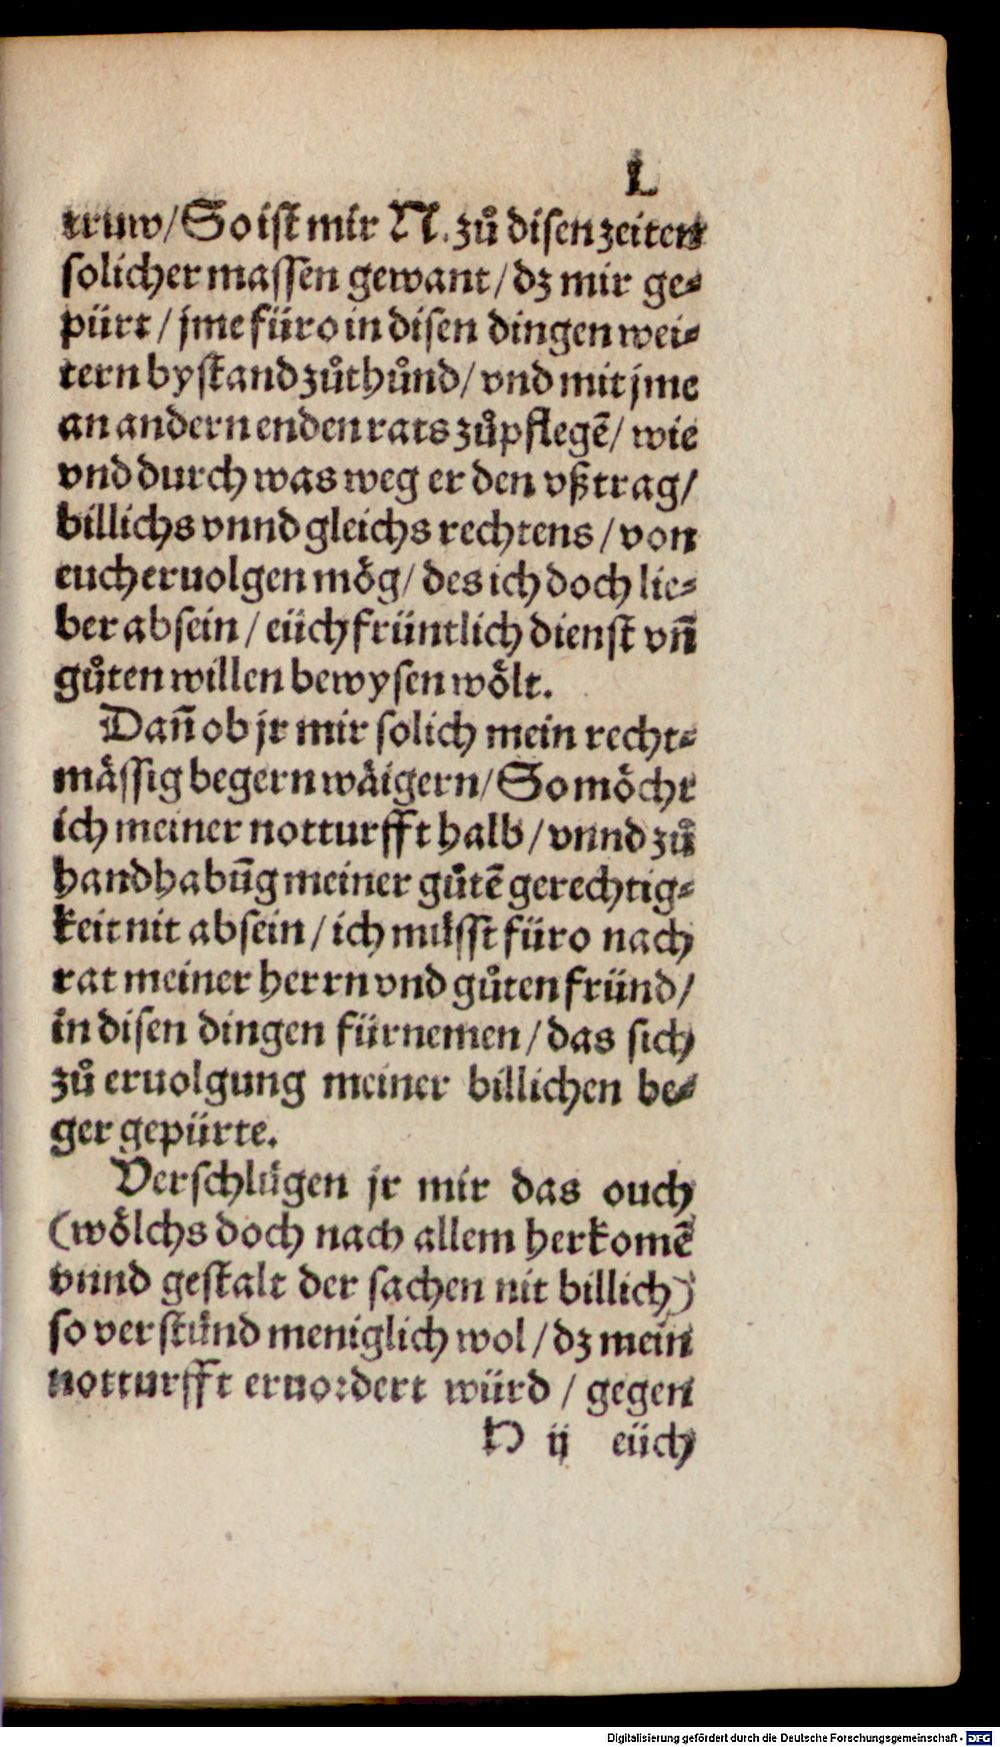 L
truw/ So ist mir N. zů disen zeiten
solicher massen gewant/ dz mir ge⸗
pürt/ jme füro in disen dingen wei⸗
tern bystand zůthůnd/ vnd mit jme
an andern enden rats zůpflegē/ wie
vnd durch was weg er den vßtrag/
billichs vnnd gleichs rechtens/ von
euch eruolgen mög/ des ich doch lie⸗
ber absein/ eüch früntlich dienst vñ
gůten willen bewysen wölt.
Dañ ob jr mir solich mein recht⸗
mässig begern wäigern/ So möcht
ich meiner notturfft halb/ vnnd zů
handhabūg meiner gůtē gerechtig⸗
keit nit absein/ ich müsst füro nach
rat meiner herrn vnd gůten fründ/
in disen dingen fürnemen/ das sich
zů eruolgung meiner billichen be⸗
ger gepürte.
Verschlügen jr mir das ouch
(wölchs doch nach allem herkomē
vnnd gestalt der sachen nit billich)
so verstünd meniglich wol/ dz mein
notturfft eruordert würd/ gegen
H ij eüch
Digitalisierung gefördert durch die Deutsche Forschungsgemeinschaft - DFG